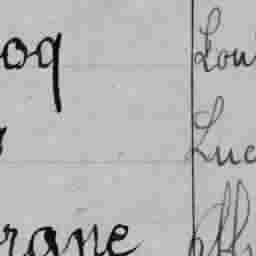 oq Lou
Luc
rane